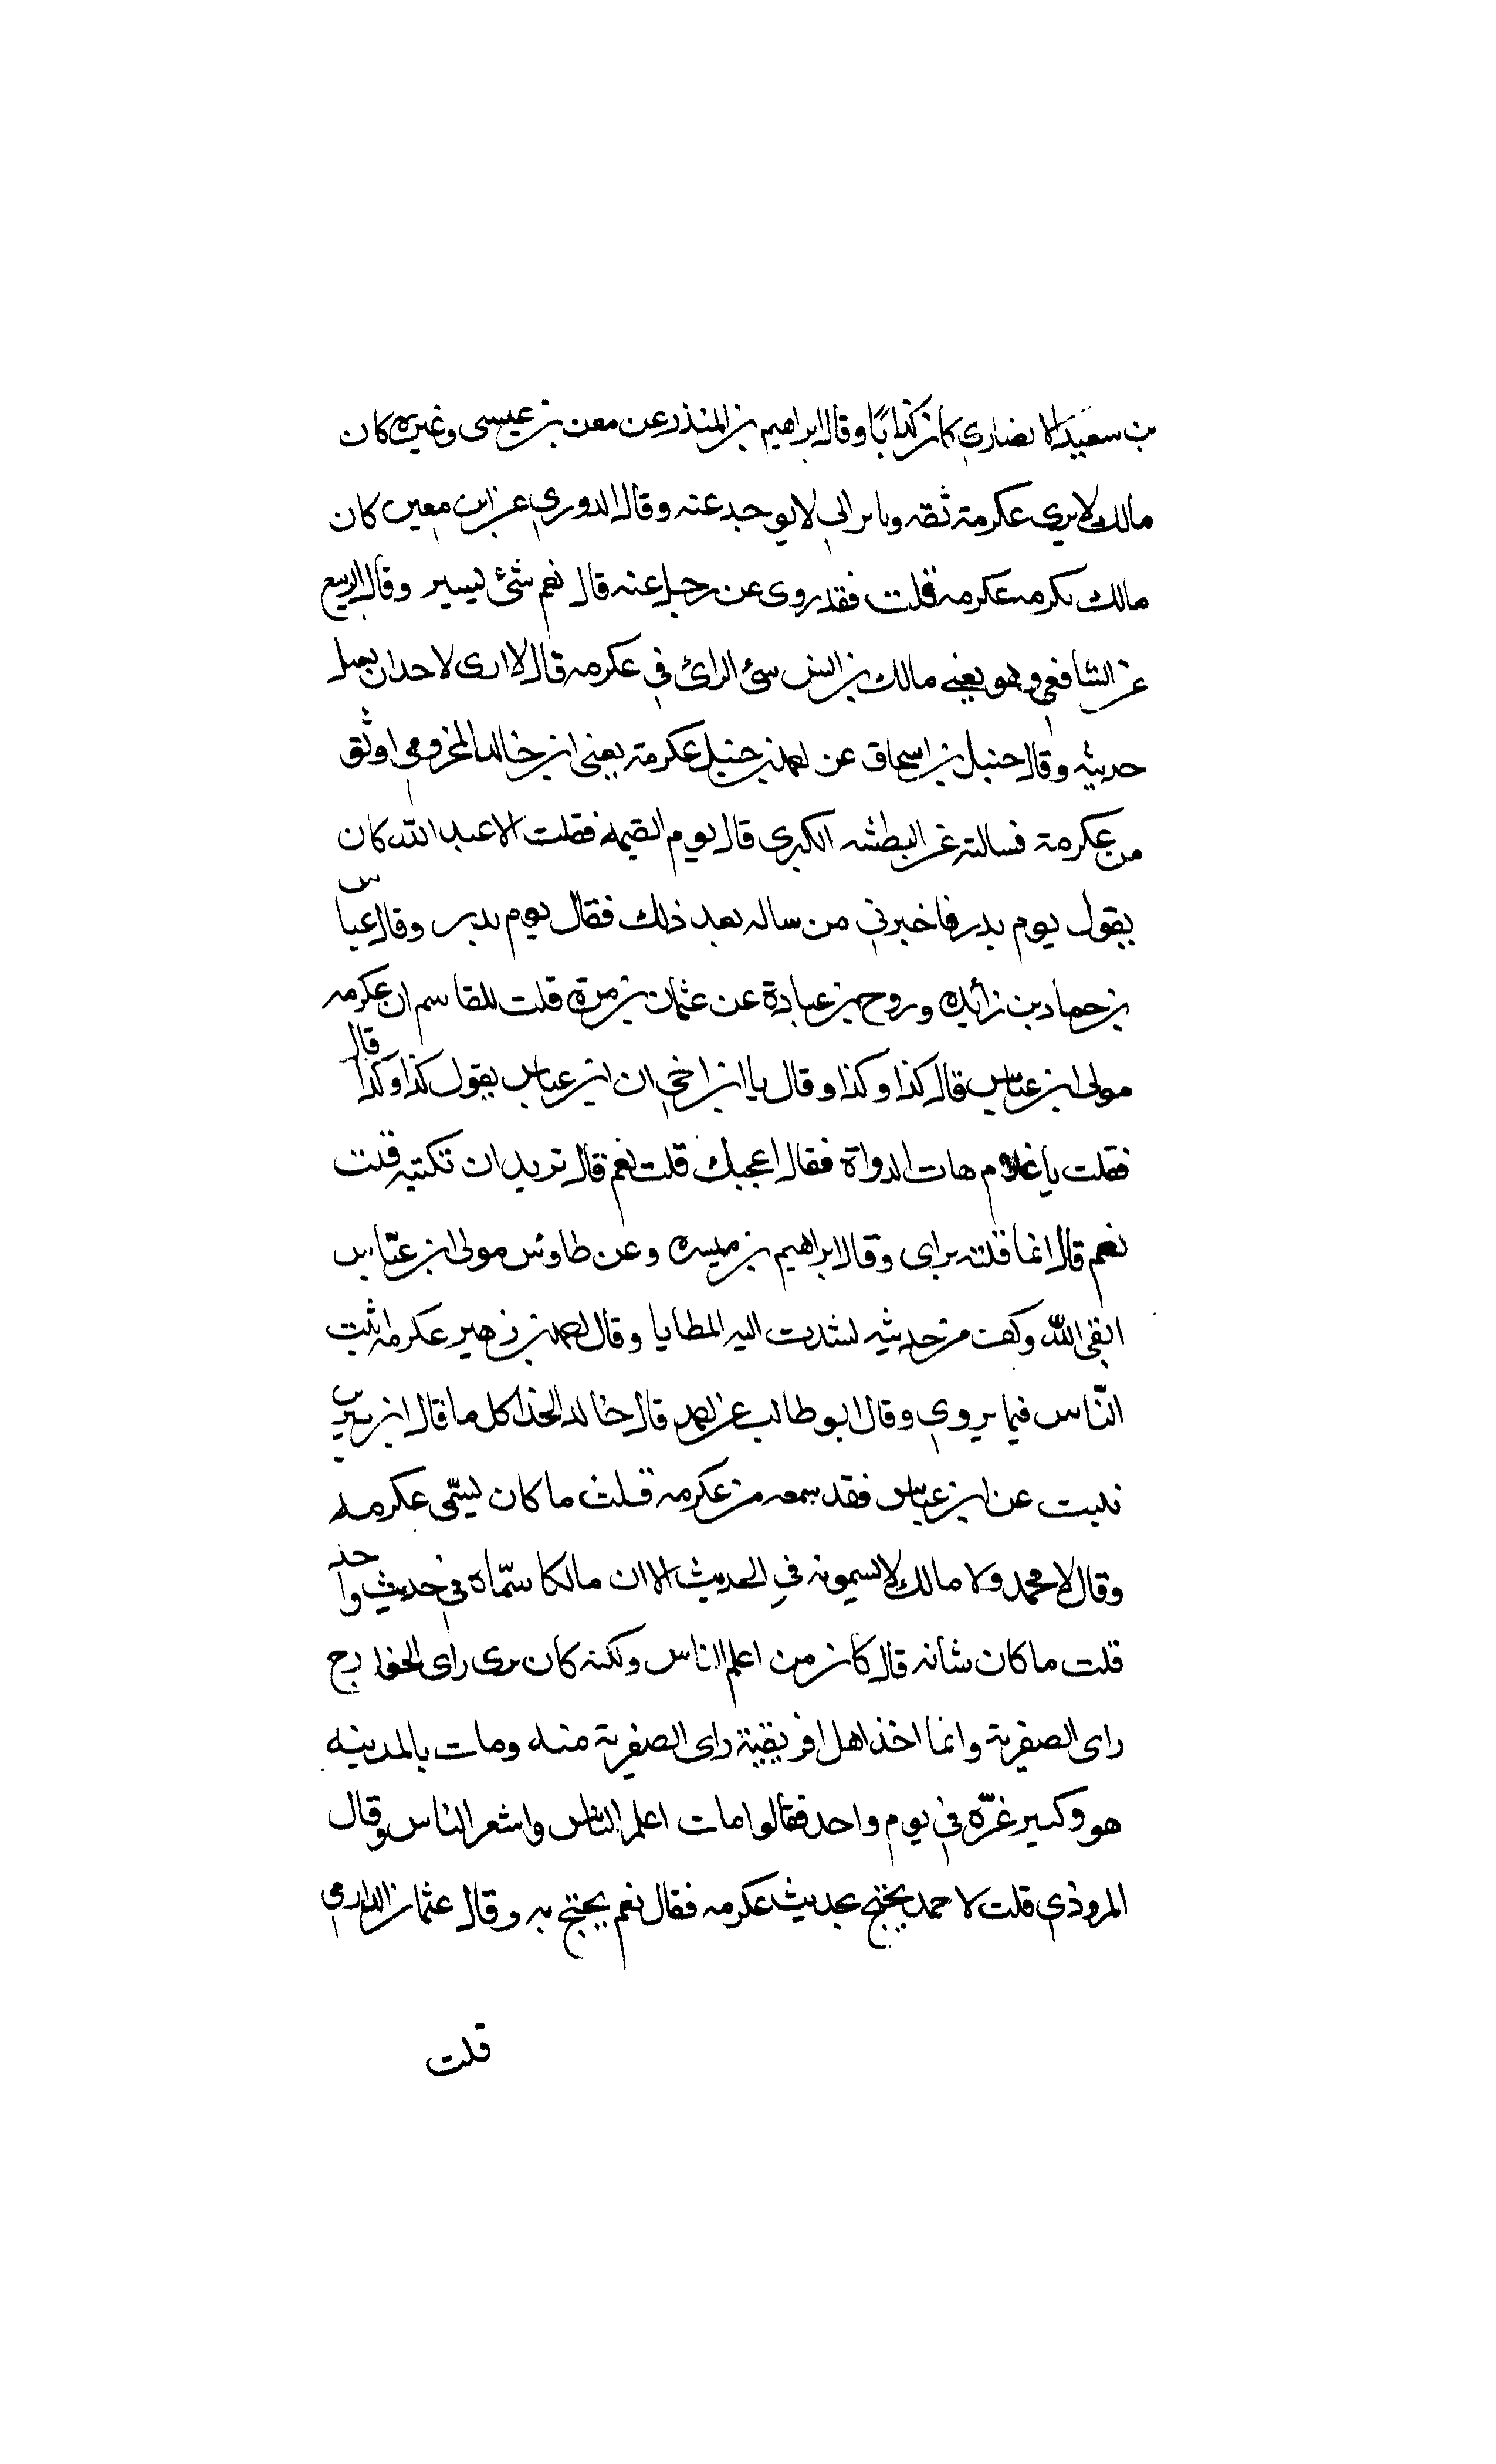 بن سعيد الانصاري كان كذابًا وقال ابراهيم بن المنذر عن معن بن عيسى وغيره كان
مالك لا يري عكرمة ثقه ويامر ان لا يوخد عنه وقال الدوري عن ابن معين كان
مالك يكره عكرمه قلت فقد روى عن رجل عنه قال نعم شئ يسير وقال الربيع
عن الشافعي وهو يعني مالك بن انس سئ الرائ في عكرمه قال لا ارى لاحد ان يقبل
حديثه وقال حنبل بن اسحاق عن احمد بن حنبل عكرمة يعني ابن خالد المخزومي اوثق
من عكرمة فسالته عن البطشه الكبرى قال يوم القيمه فقلت ان عبد الله كان
يقول يوم بدر فاخبرني من ساله بعد ذلك فقال يوم بدر وقال عباس
بن حماد بن زائده وروح بن عبادة عن عثمان بن مرة قلت للقاسم ان عكرمه
مولى ابن عباس قال كذا وكذا وقال يا ابن اخي ان ابن عباس يقول كذا وكذا قال
فقلت يا غلام هات الدواة فقال اعجبك قلت نعم قال تريد ان تكتبه قلت
نعم قال انما قلته براى وقال ابراهيم بن ميسره وعن طاوس مولى ابن عبّاس
اتقى الله وكف من حديثه لشدت اليه المطايا وقال احمد بن زهير عكرمه اثبت
النّاس فيما يروي وقال ابو طالب عن احمد قال خالد الحذا كل ما قال ابن سيرين
نبت عن ابن عباس فقد سمعه من عكرمه قلت ما كان يسمّى عكرمه
وقال لا محمد ولا مالك لا يسمونه في الحديث الا ان مالكا سمّاه في حديث واحد
قلت ما كان شانه قال كان من اعلم الناس ولكنه كان يرى راى الخوارج
راى الصفرية وانما اخذ اهل افريقية راى الصفرية منه ومات بالمدينه
هو وكثير عزّه في يوم واحد فقالوا مات اعلم الناس واشعر الناس وقال
المروذي قلت لاحمد يحتج بحديث عكرمه فقال نعم يحتج به وقال عثمان الدارمي
قلت